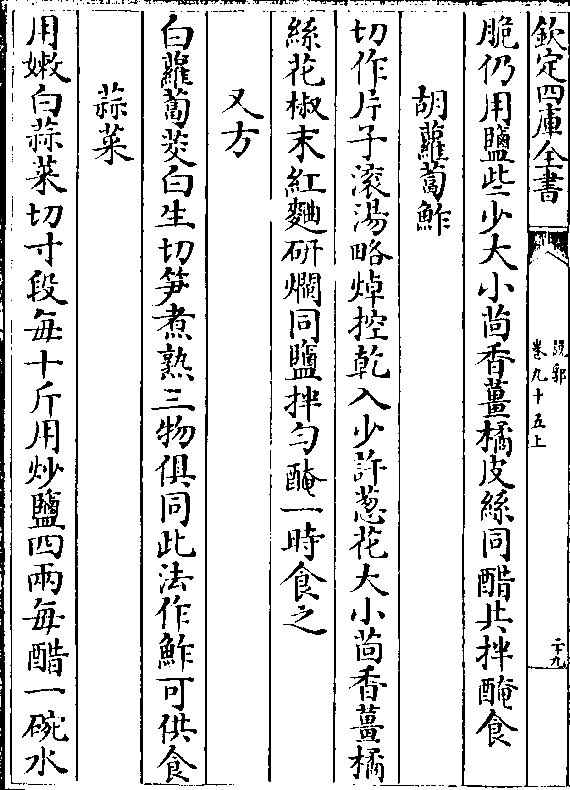 欽定四庫全書
說郛
卷九十五上
二十九
脆仍用鹽些少大小茴香薑橘皮絲同醋共拌醃食
胡蘿蔔鮓
切作片子滚湯略焯控乾入少許葱花大小茴香薑橘
絲花椒末紅麯研爛同鹽拌勻醃一時食之
又方
白蘿蔔茭白生切笋煮熟三物俱同此法作鮓可供食
蒜菜
用嫩白蒜菜切寸段每十斤用炒鹽四兩每醋一碗水